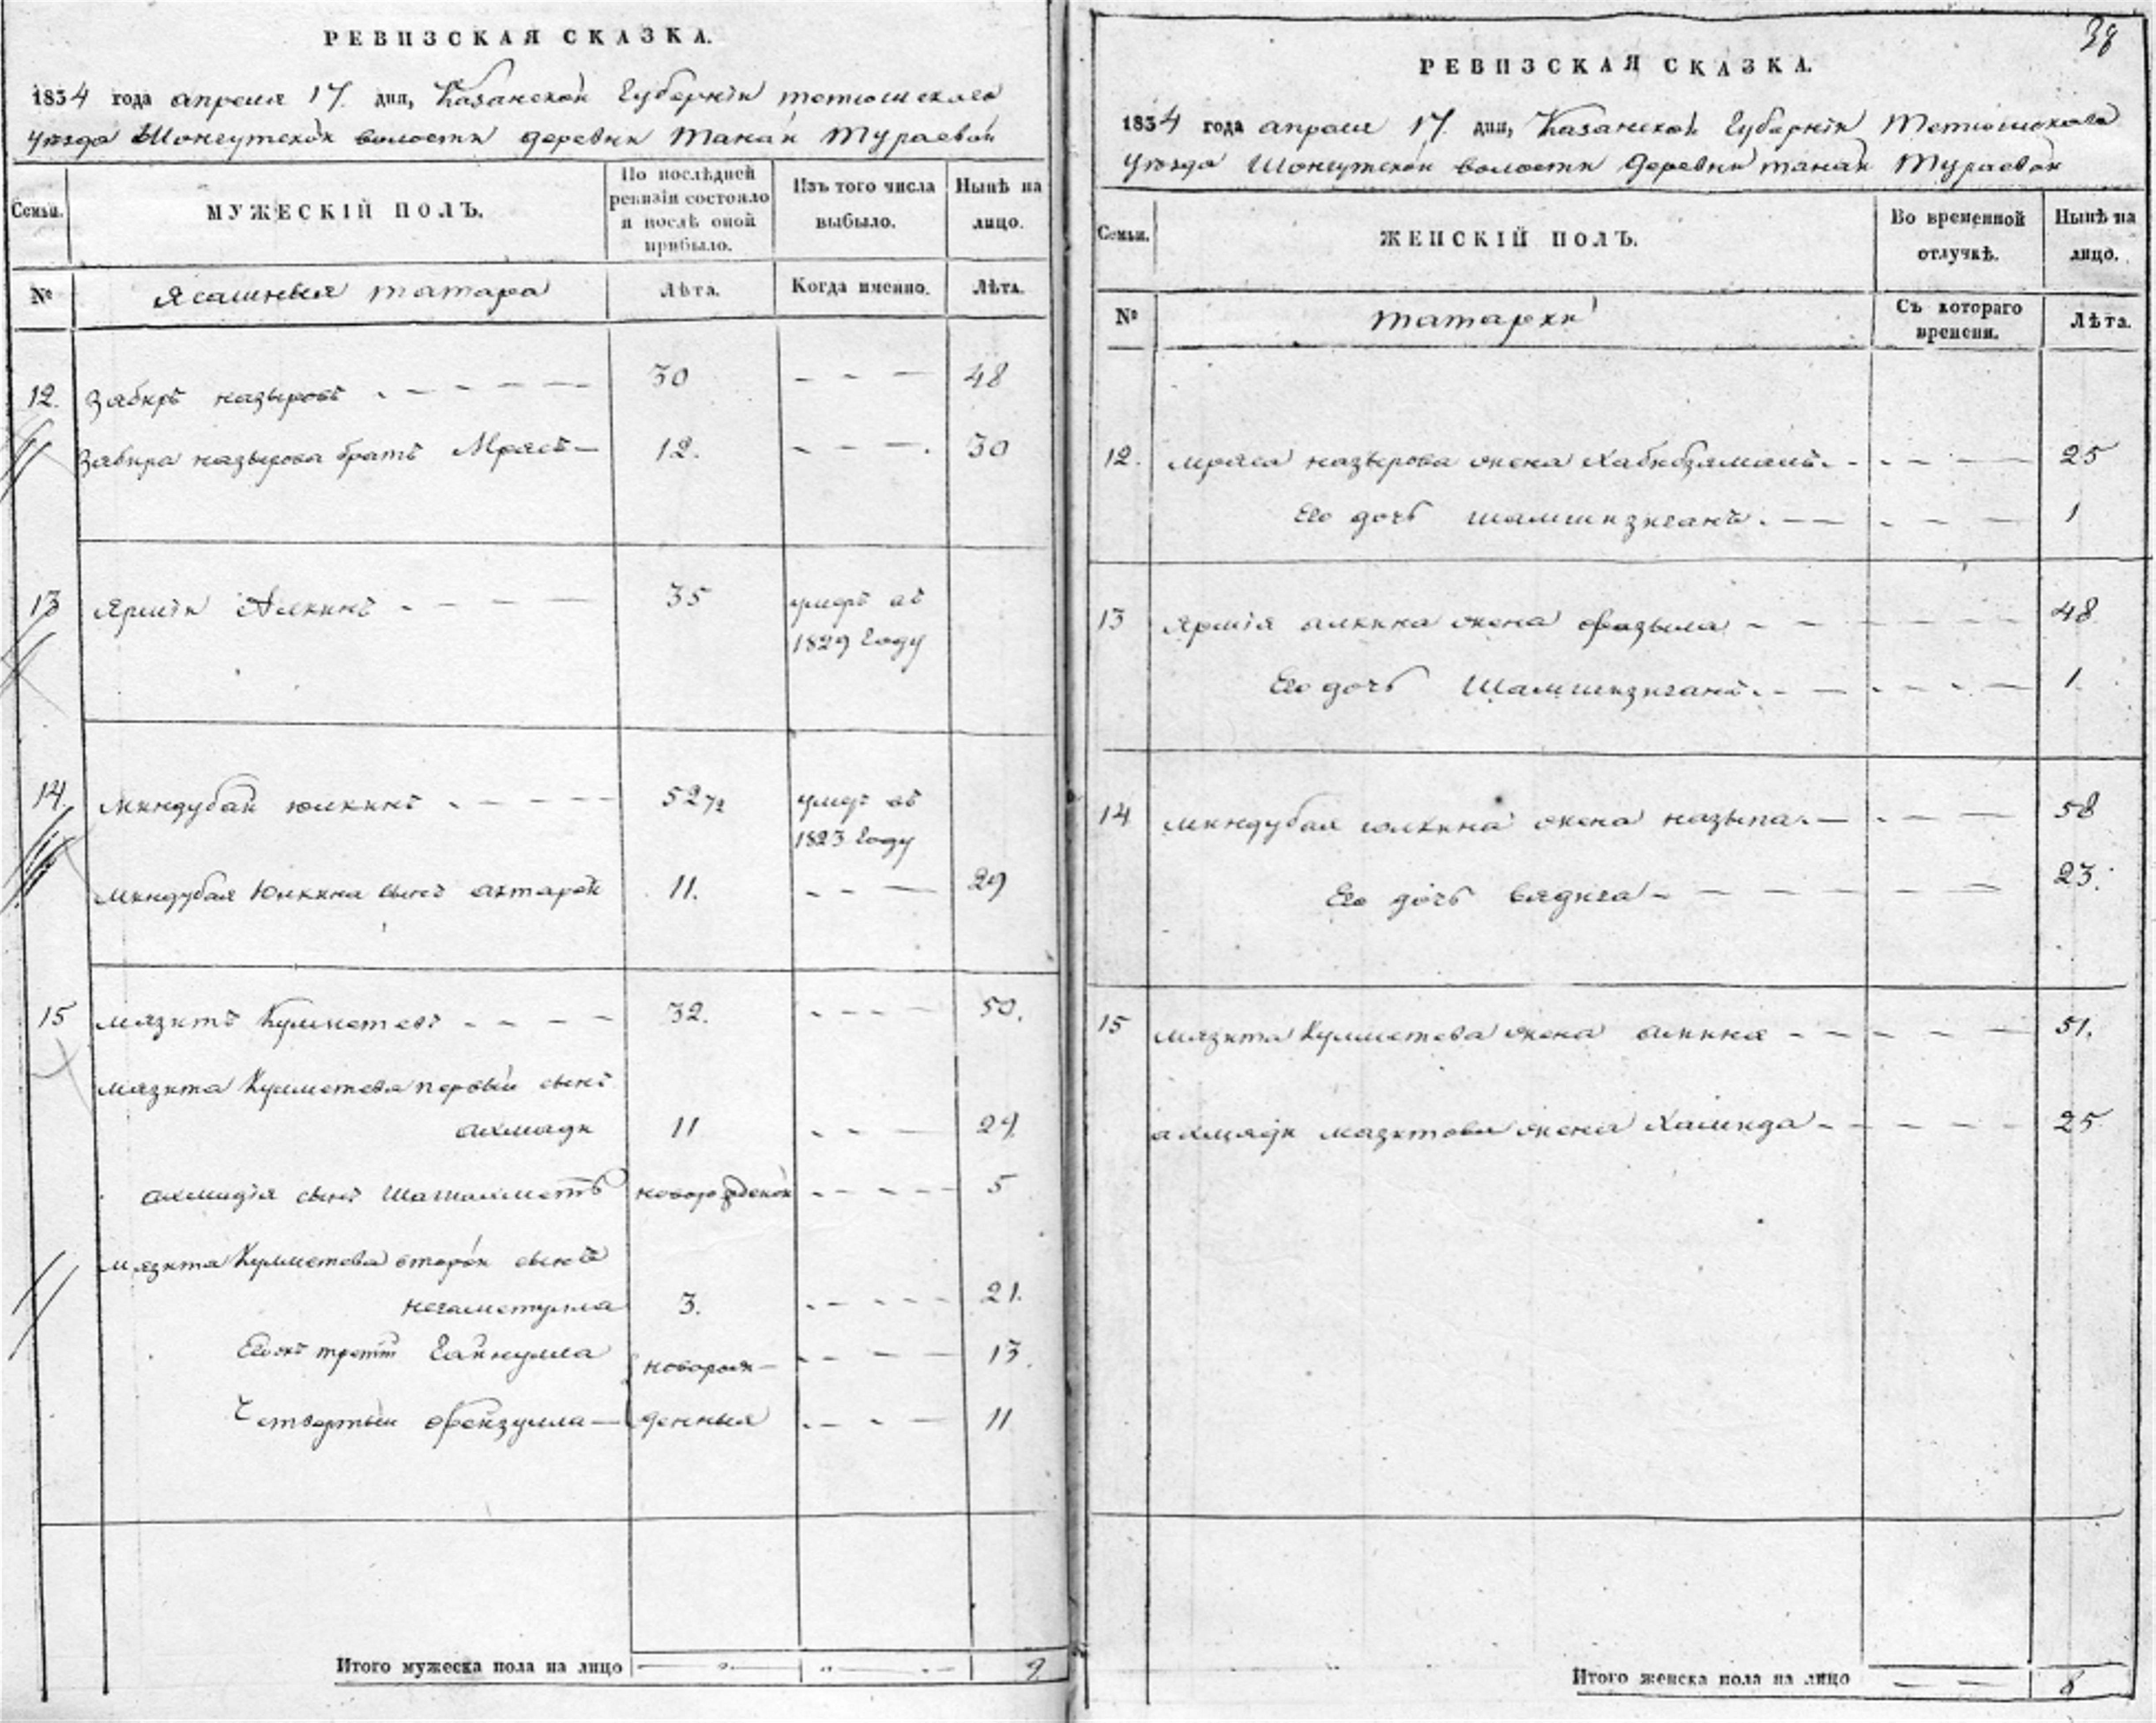 РЕВИЗСКАЯ СКАЗКА.
1834 года апреля 17. дня, Казанской Губернiи тетюшскаго
уѣзда Шонгутской волости деревни Танай Тураевой
Семьи.
МУЖЕСКIЙ ПОЛЪ.
По послѣдней ревизiи состояло и послѣ оной прибыло.
Изъ того числа выбыло.
Нынѣ на лицо.
№
Ясашныя татара
Лѣта.
Когда именно.
Лѣта.
12. Забиръ назыровъ . - - - - 30 - - - 48
Забира назырова братъ Мрясъ - 12. - - - . 30
13 Ярмiй Алкинъ - - - - 35 умеръ въ
1829 году
14. миндубай юлкинъ . - - - 52 1/2 умеръ въ
1823 году
миндубая Юлкина сынъ ахтарей 11. - - - 29
15 мязитъ Кулметевъ - - - - 32. - - - - 50.
мязита Кулметева первый сынъ
ахмади 11 - - - 29
ахмадiя сынъ Шагиахметъ новорожденой - - - - 5
мязита Кулметева второй сынъ
негаметулла 3. - - - - 21.
Его же третiй Гайнулла новорож- - - - - 13.
Четвертый фейзулла - денныя - - - 11
Итого мужеска пола на лицо 9
38
РЕВИЗСКАЯ СКАЗКА.
1834 года апреля 17. дня, Казанской Губернiи Тетюшскаго
уѣзда Шонгутской волости деревни танай Тураевой
Семьи.
ЖЕНСКIЙ ПОЛЪ.
Во временной отлучкѣ.
Нынѣ на лицо.
№
татарки
Съ котораго времени.
Лѣта.
12. мряса назырова жена Хабибзямалъ. - - - - 25
Его дочь шамшизиганъ. - - - - 1
13 Ярмiя алкина жена фазыла - - - - 48
Его дочь Шамшизиганъ. - - - - 1.
14 миндубая юлкина жена назыпа. - - - 58
Его дочь вядига - - - - 23.
15 мязита Кулметева жена алкина - - - - 51.
ахмади мазитова жена Халида - - - - 25
Итого женска пола на лицо 8